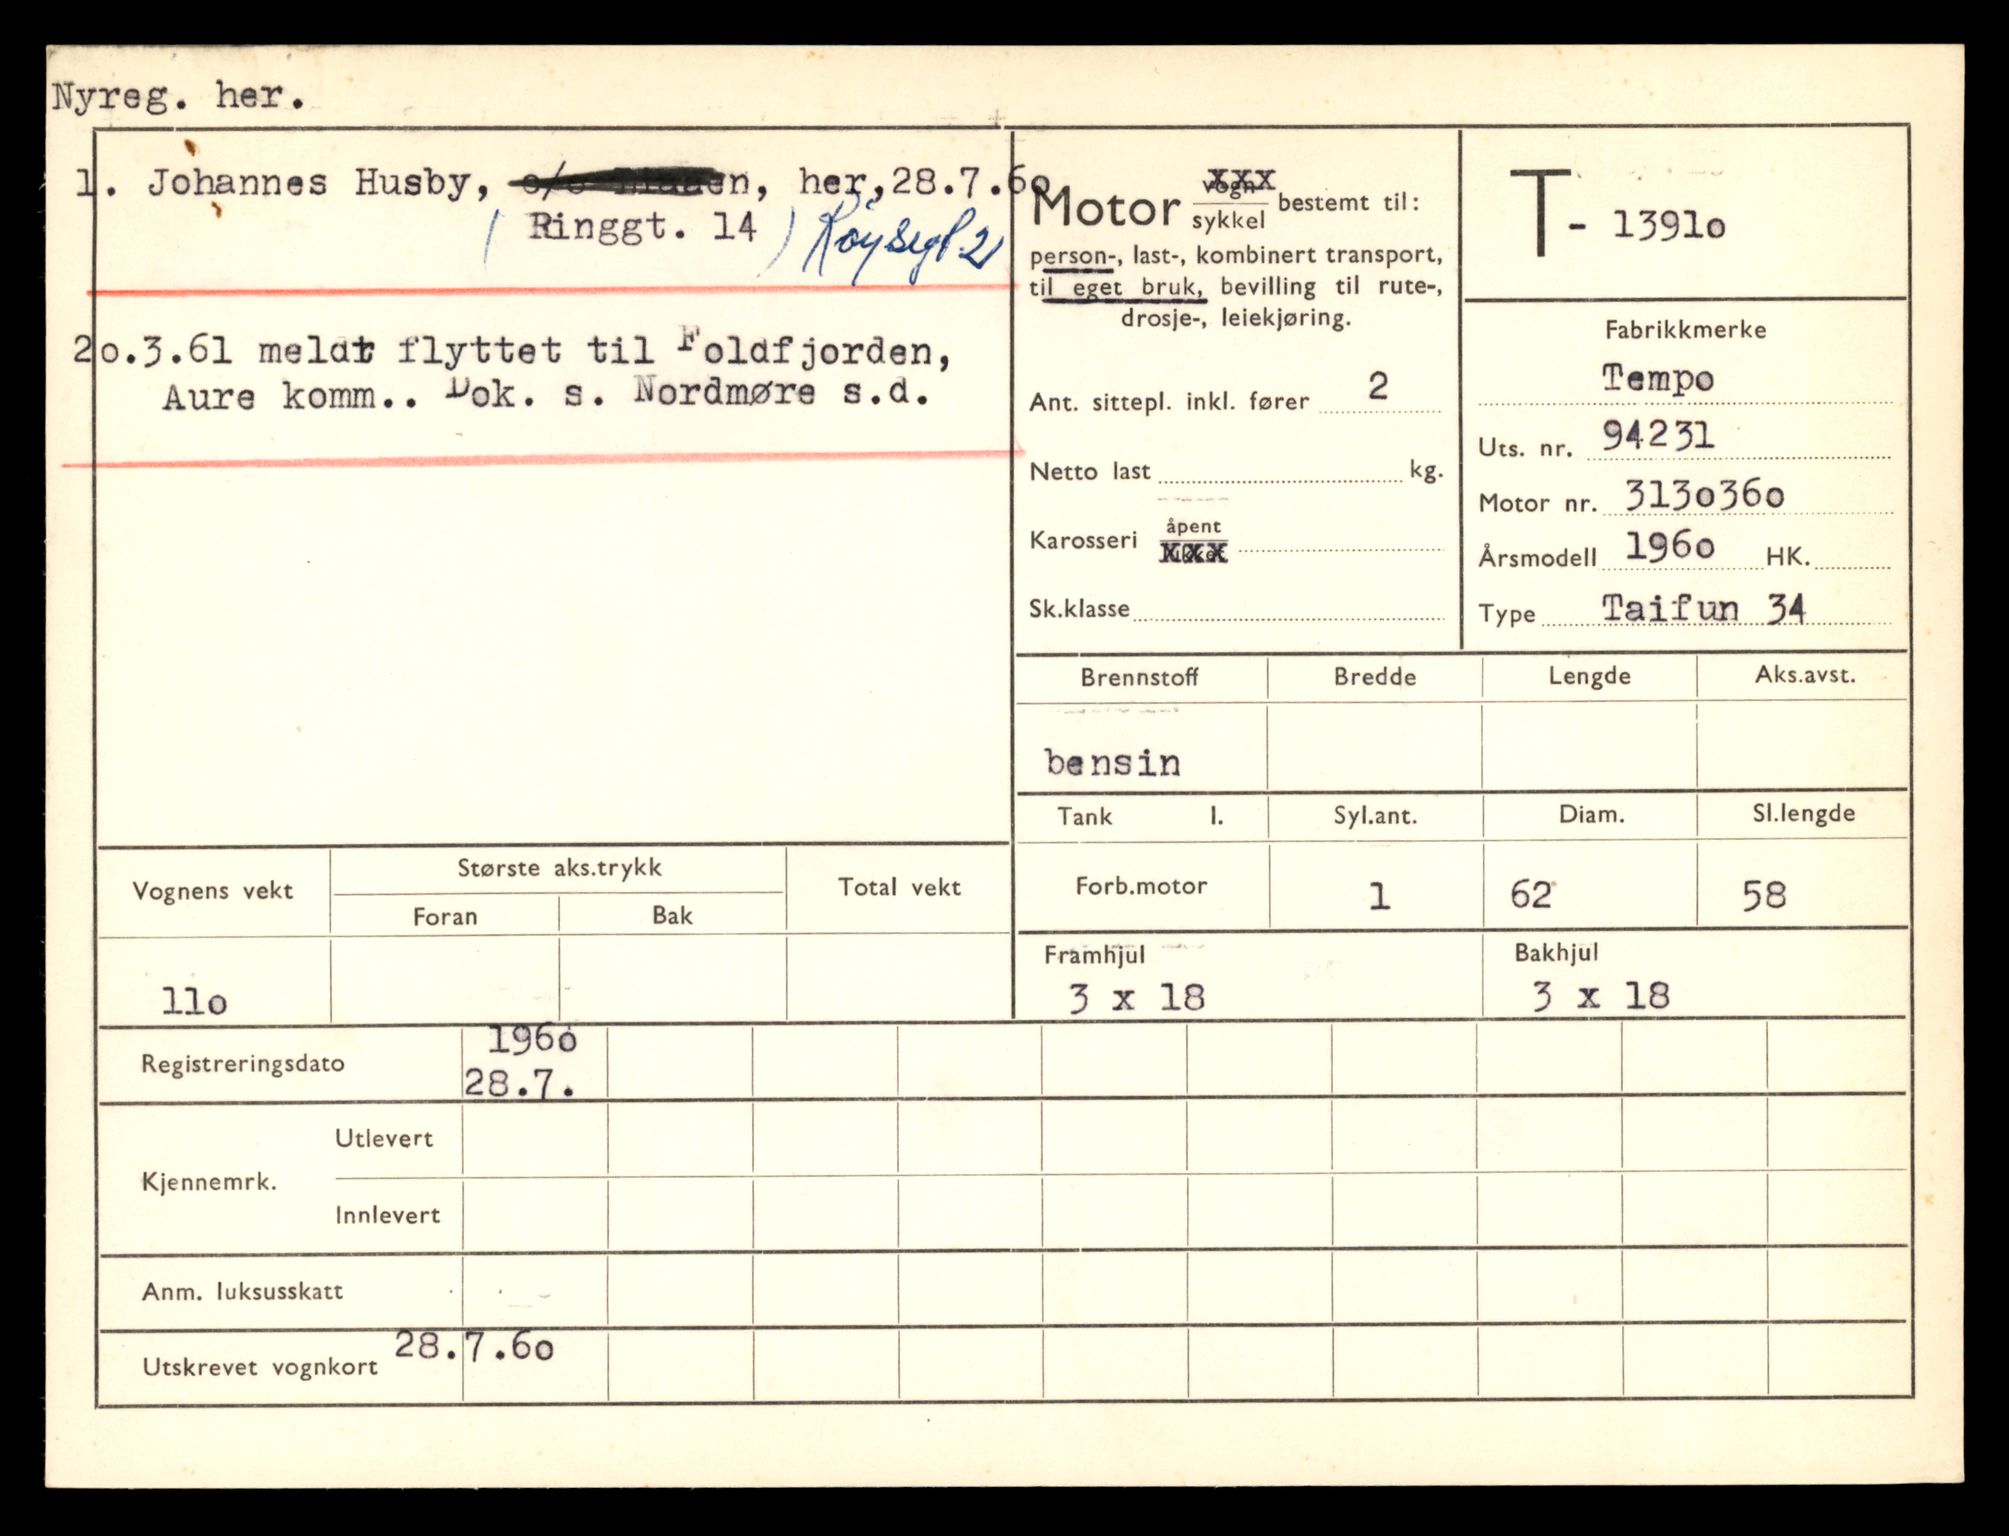 Nyreg. her.
1. Johannes Husby, c/o , her,28.7.6o
( Ringgt. 14 )
2o.3.61 meldt flyttet til Foldfjorden,
Aure komm.. Dok. s. Nordmøre s.d.
Motor vogn
sykkel bestemt til:
person-, last-, kombinert transport,
til eget bruk, bevilling til rute-,
drosje-, leiekjøring.
Ant. sittepl. inkl. fører 2
Netto last kg.
Karosseri åpent
lukket
Sk.klasse
T- 1391o
Fabrikkmerke
Tempo
Uts. nr. 94231
Motor nr. 313o36o
Årsmodell 196o HK.
Type Taifun 34
Brennstoff Bredde Lengde Aks.avst.
bensin
Tank l. Syl.ant. Diam. Sl.lengde
Forb.motor 1 62 58
Framhjul Bakhjul
3 x 18 3 x 18
Vognens vekt Største aks.trykk Total vekt
Foran Bak
11o
Registreringsdato 196o
28.7.
Kjennemrk. Utlevert
Innlevert
Anm. luksusskatt
Utskrevet vognkort 28.7.6o